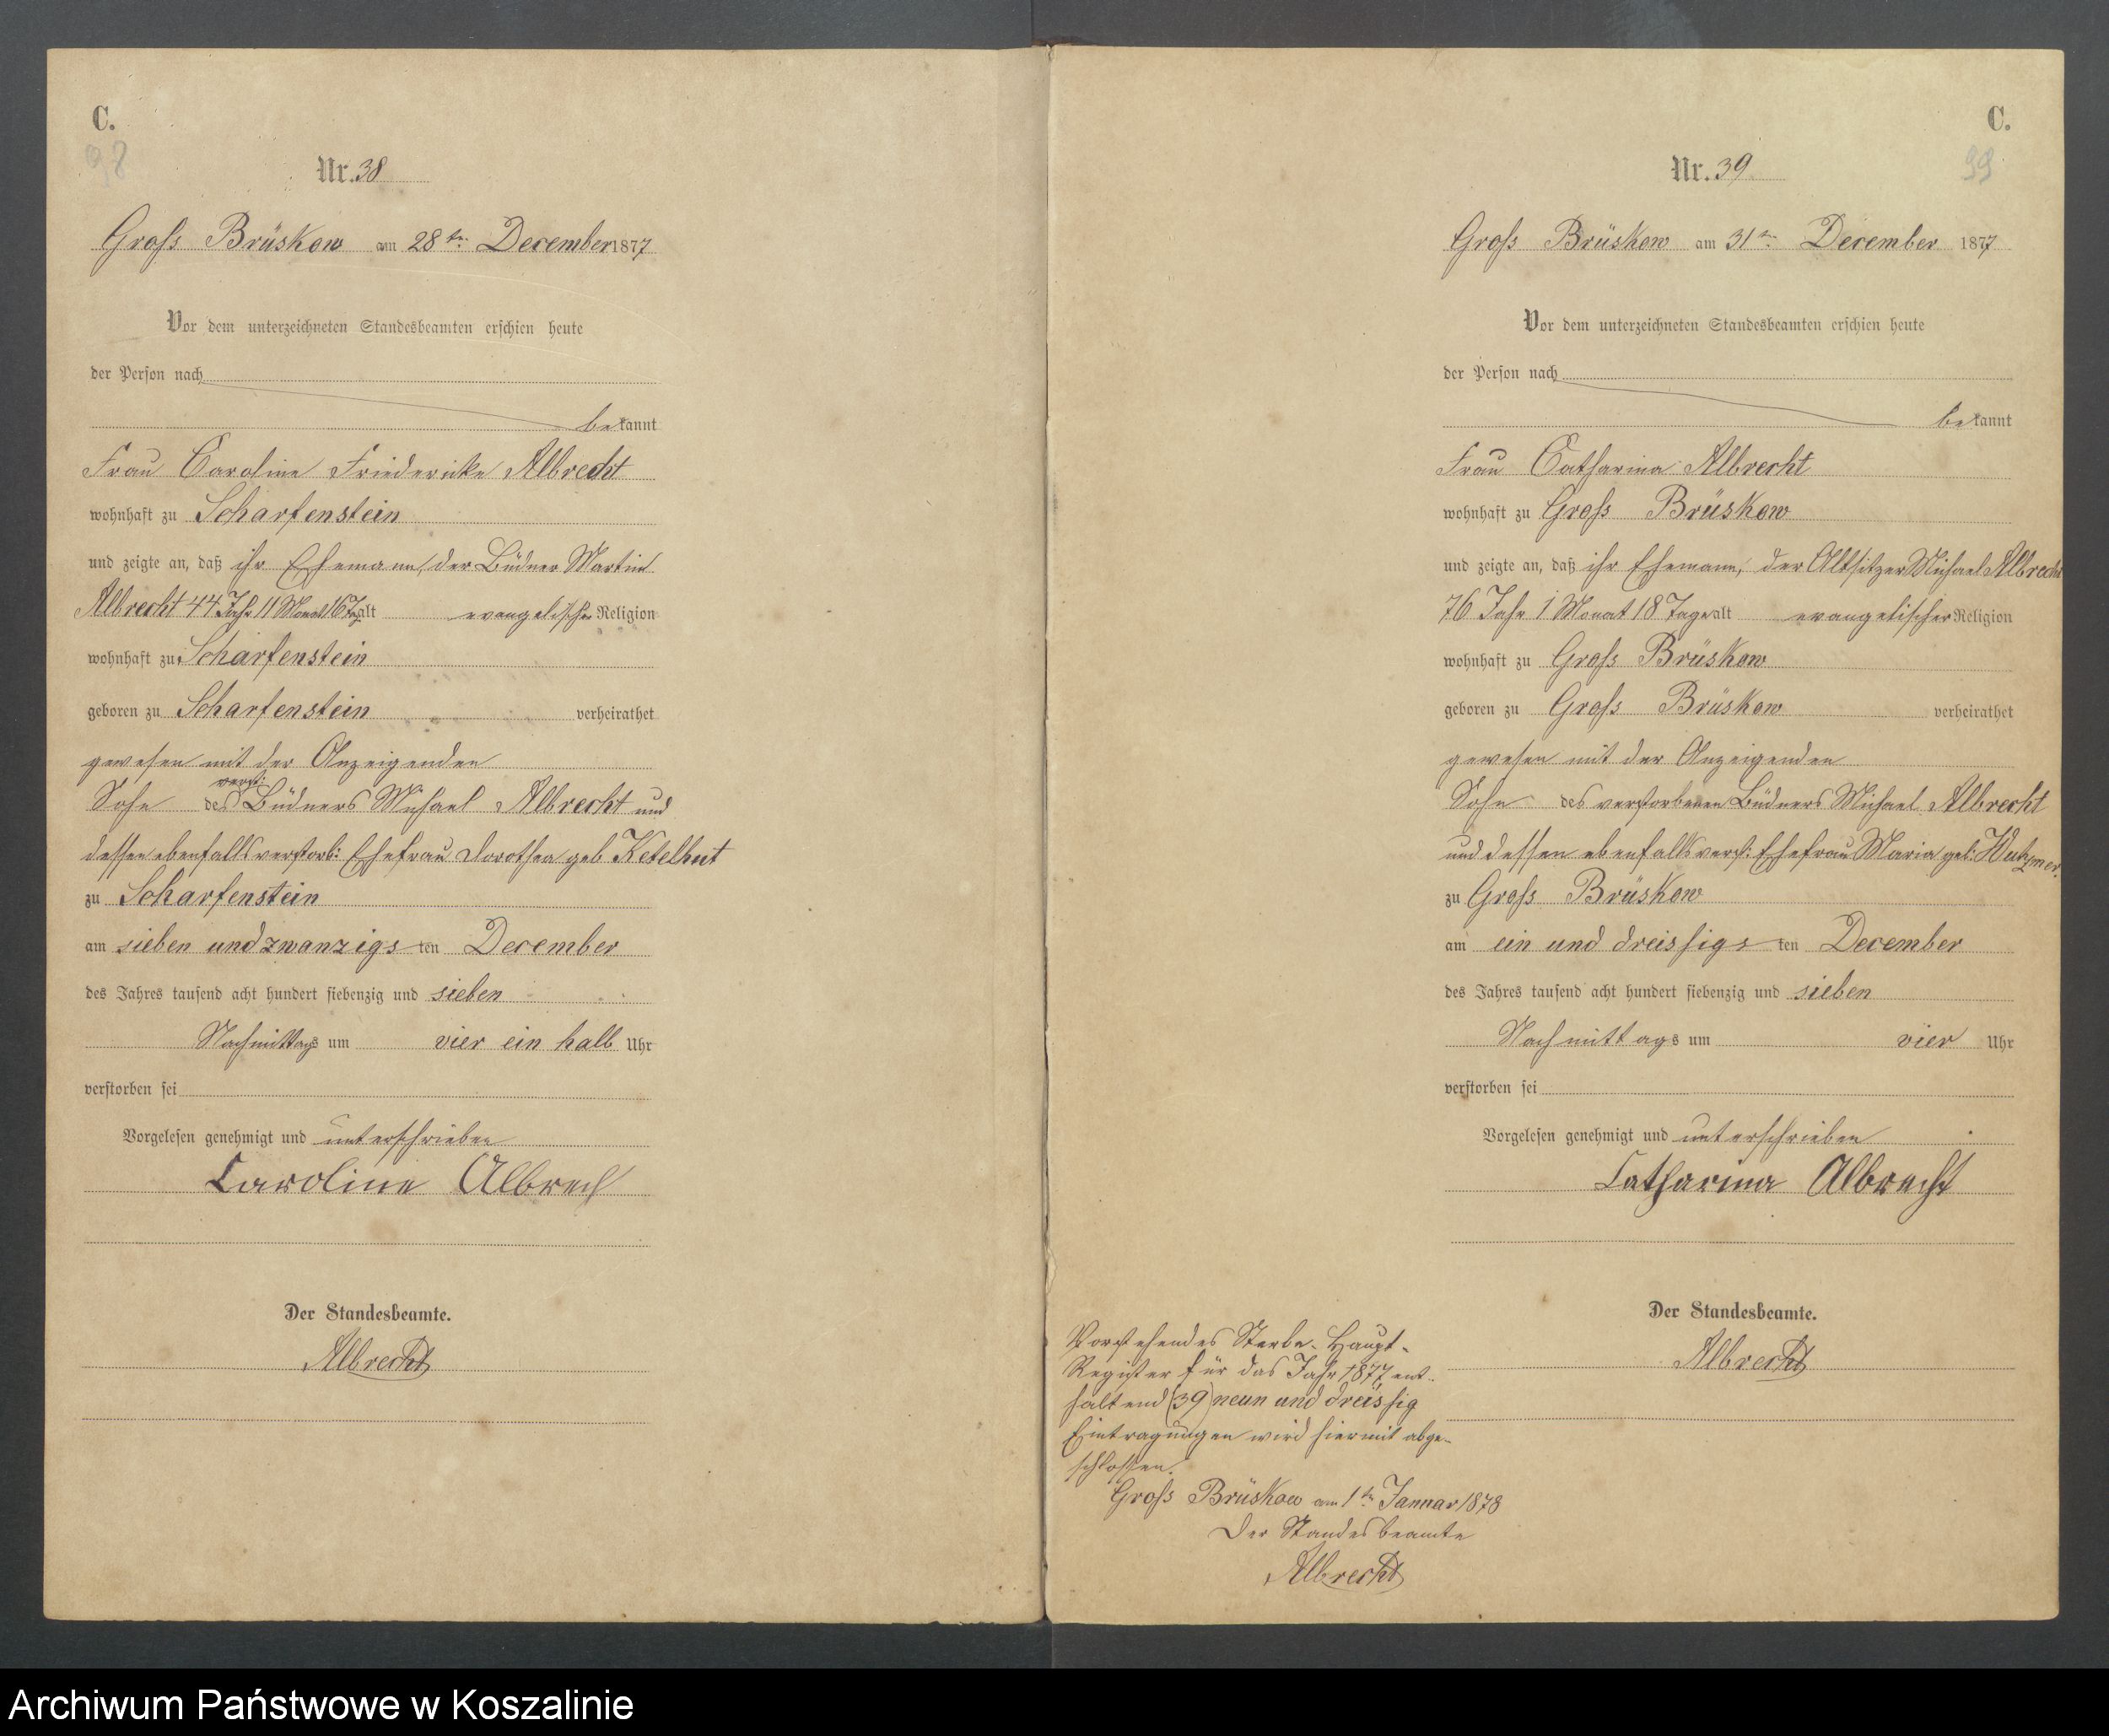 C.
98
Nr. 38
Gross Brüskow am 28ten December 1877
Vor dem unterzeichneten Standesbeamten erschien heute
der Person nach
bekannt
Frau Caroline Friedericke Albrecht
wohnhaft zu Scharfenstein
und zeigte an, daß ihr Ehemann, der Büdner Martin
Albrecht 44 Jahr 11 Monat 16 Tg alt evangelischer Religion
wohnhaft zu Scharfenstein
geboren zu Scharfenstein verheirathet
gewesen mit der Anzeigenden
verst:
Sohn des Büdners Michael Albrecht und
dessen ebenfalls verstorb: Ehefrau Dorothea geb Ketelhut
zu Scharfenstein
am sieben und zwanzigsten December
des Jahres tausend acht hundert siebenzig und sieben
Nachmittags um vier ein halb Uhr
verstorben sei
Vorgelesen genehmigt und unterschrieben
Caroline Albrech
Der Standesbeamte.
Albrecht
C.
99
Nr. 39
Gross Brüskow am 31ten December 1877
Vor dem unterzeichneten Standesbeamten erschien heute
der Person nach
bekannt
Frau Catharina Albrecht
wohnhaft zu Gross Brüskow
und zeigte an, daß ihr Ehemann, der Altsitzer Michael Albrecht
76 Jahr 1 Monat 18 Tage alt evangelischer Religion
wohnhaft zu Gross Brüskow
geboren zu Gross Brüskow verheirathet
gewesen mit der Anzeigenden
Sohn des verstorbenen Büdners Michael Albrecht
und dessen ebenfalls verst: Ehefrau Maria geb:
zu Gross Brüskow
am ein und dreissigsten December
des Jahres tausend acht hundert siebenzig und sieben
Nachmittags um vier Uhr
verstorben sei
Vorgelesen genehmigt und unterschrieben
Catharina Albrecht
Der Standesbeamte.
Albrecht
Vorstehendes Sterbe-Haupt-
Register für das Jahr 1877 ent-
haltend (39) neun und dreissig
Eintragungen wird hiermit abge-
schlossen.
Gross Brüskow am 1ten Januar 1878
Der Standesbeamte
Albrecht
Archiwum Państwowe w Koszalinie